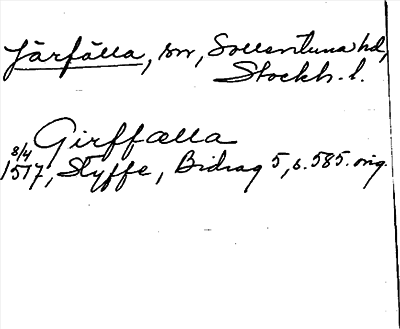 Järfälla, sn, Sollentuna hd,
Stockh. l.
Girffælla
8/4 1517, Styffe, Bidrag 5, s. 585. orig.